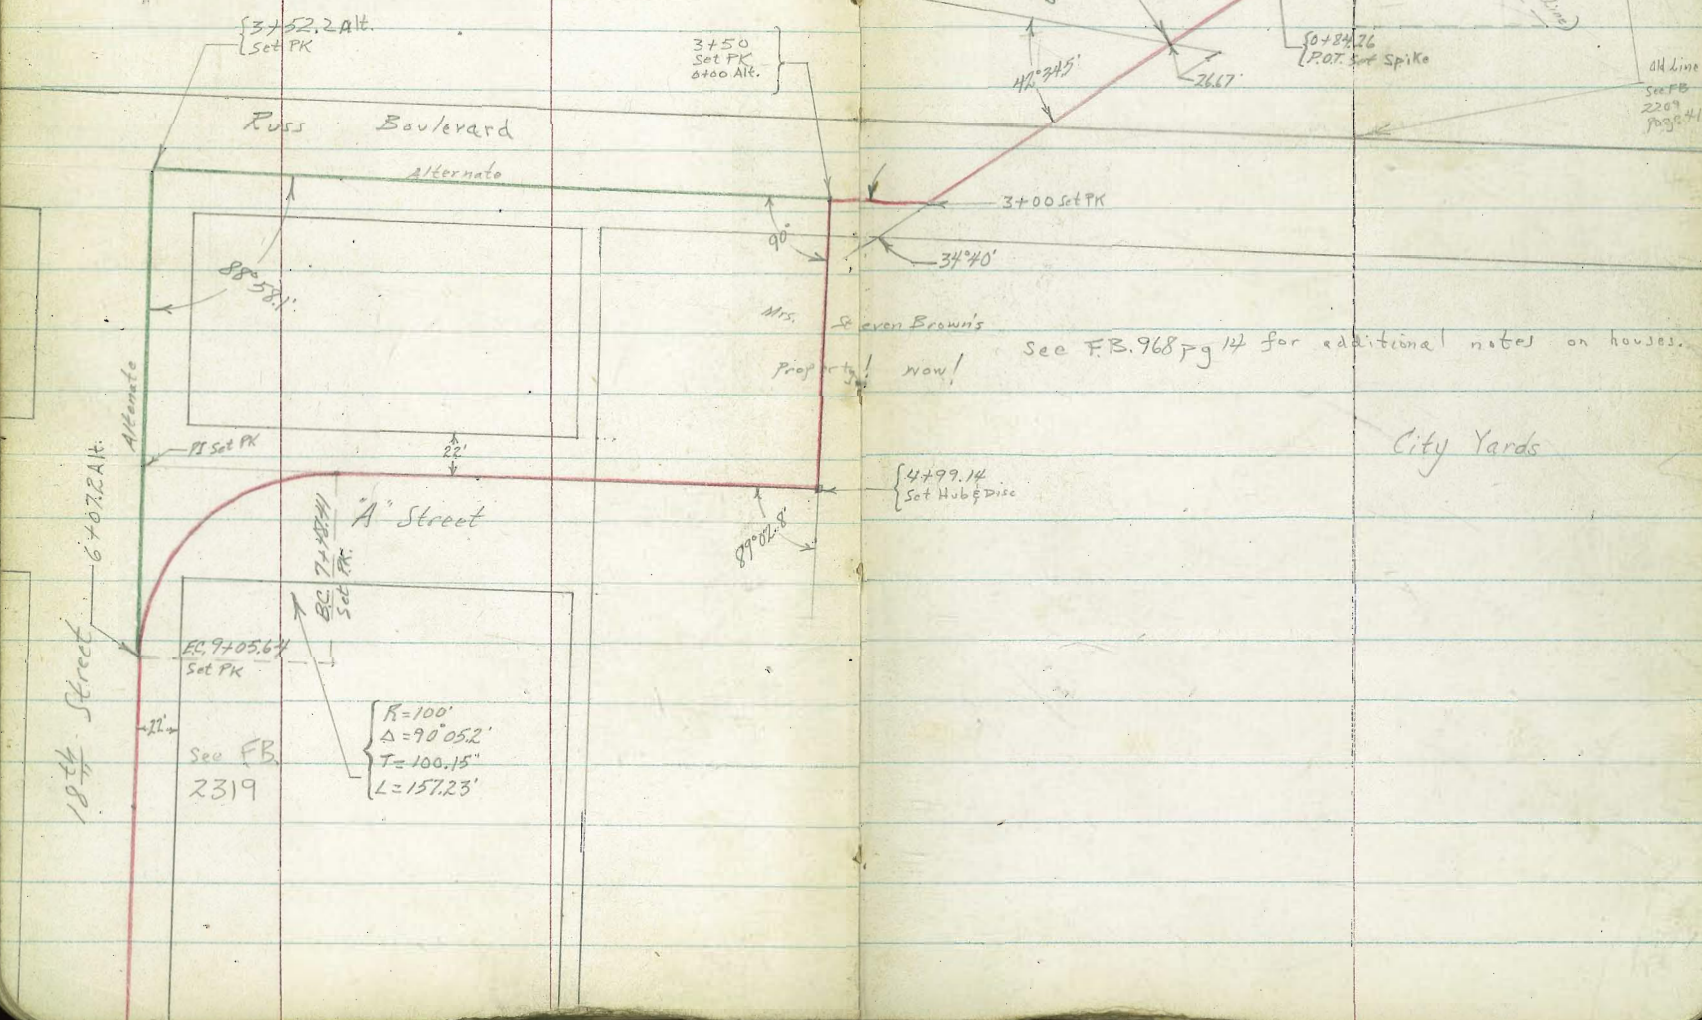 {3+52.2 Alt.
Set PK
3+50
Set PK
0+00 Alt.
42°34.5'
26.67'
{0+84.26
P.O.T. Set Spike
line)
Old Line
See FB
2209
page 41
Russ Boulevard
Alternate
90°
3+00 Set PK
34°40'
88°58.1'
Mrs. Steven Brown's
Property! Wow!
See F.B. 968 pg 14 for additional notes on houses.
Alternate
PI Set PK
22'
City Yards
6+07.2 Alt.
{4+99.14
Set Hub & Disc
"A" Street
89°02.8'
B.C. 7+48.41
Set PK.
E.C. 9+05.64
Set PK
18th Street
22'
See FB
2319
R=100'
Δ=90°05.2'
T=100.15"
L=157.23'